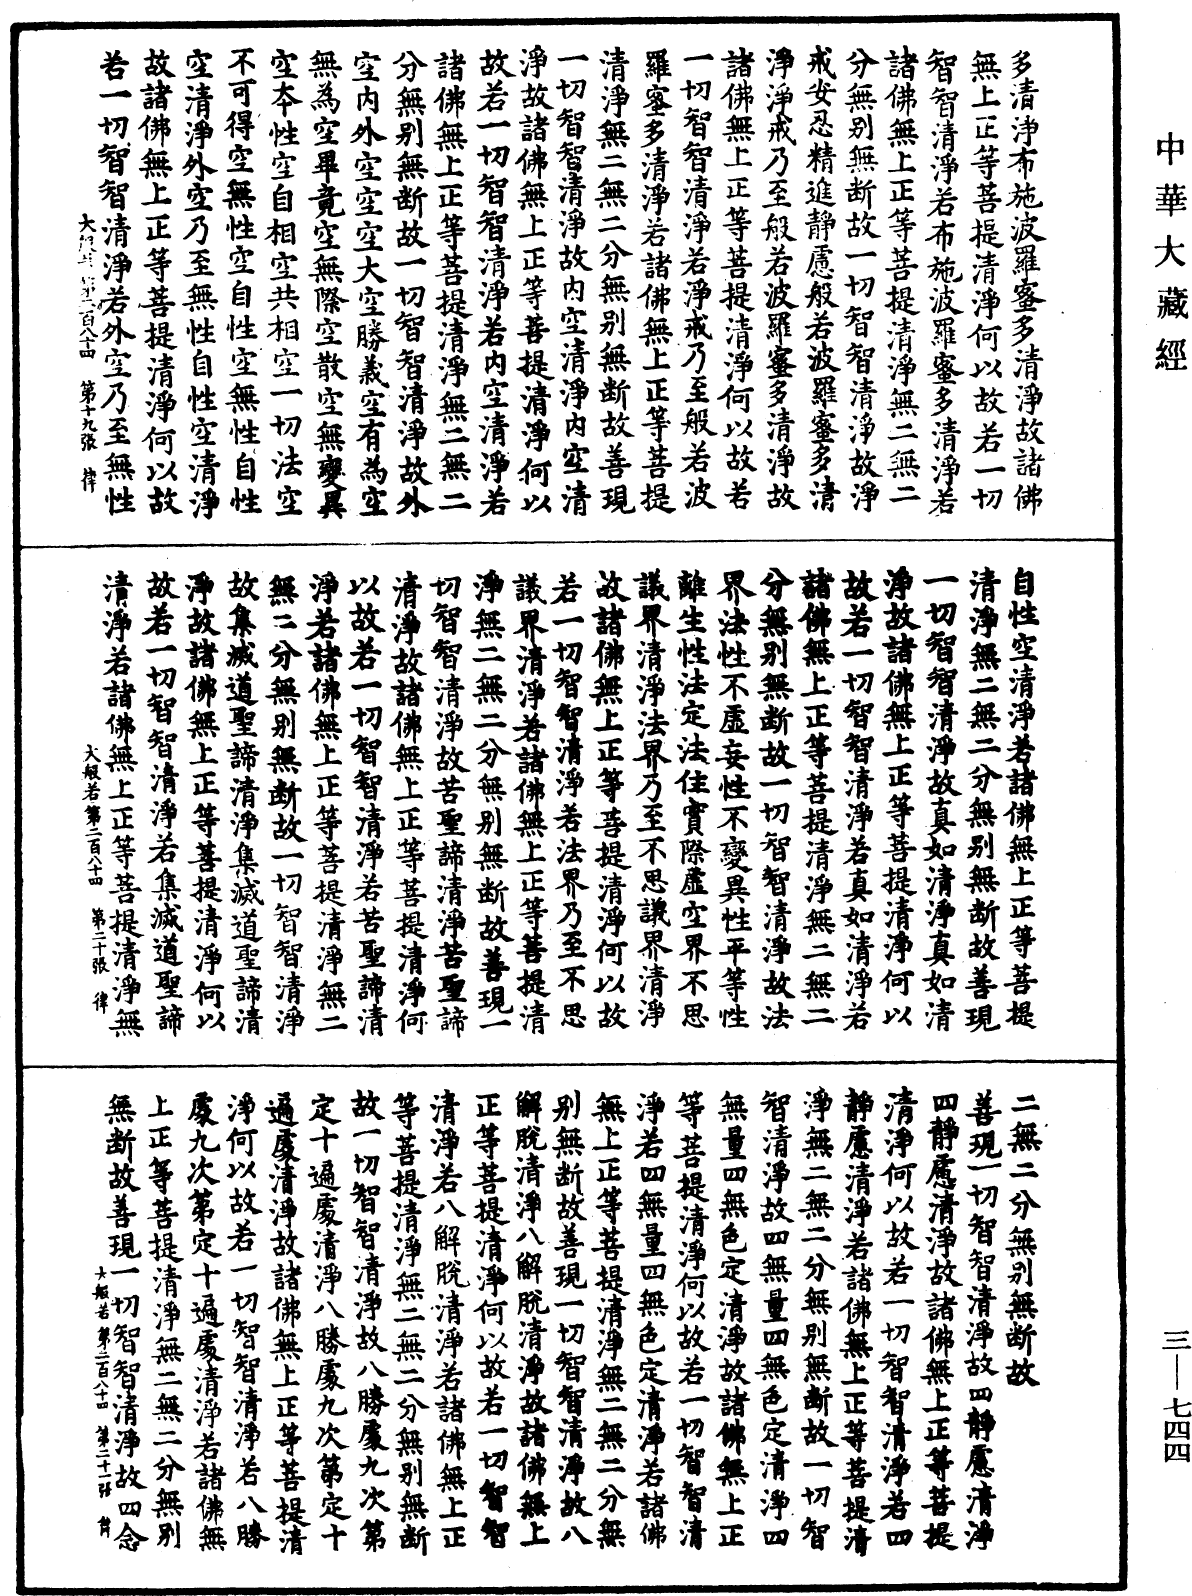 中華大藏經
多清淨布施波羅蜜多清淨故諸佛
無上正等菩提清淨何以故若一切
智智清淨若布施波羅蜜多清淨若
諸佛無上正等菩提清淨無二無二
分無別無斷故一切智智清淨故淨
戒安忍精進靜慮般若波羅蜜多清
淨淨戒乃至般若波羅蜜多清淨故
諸佛無上正等菩提清淨何以故若
一切智智清淨若淨戒乃至般若波
羅蜜多清淨若諸佛無上正等菩提
清淨無二無二分無別無斷故善現
一切智智清淨故內空清淨內空清
淨故諸佛無上正等菩提清淨何以
故若一切智智清淨若內空清淨若
諸佛無上正等菩提清淨無二無二
分無別無斷故一切智智清淨故外
空內外空空空大空勝義空有為空
無為空畢竟空無際空散空無變異
空本性空自相空共相空一切法空
不可得空無性空自性空無性自性
空清淨外空乃至無性自性空清淨
故諸佛無上正等菩提清淨何以故
若一切智智清淨若外空乃至無性
第十九張
自性空清淨若諸佛無上正等菩提
清淨無二無二分無別無斷故善現
一切智智清淨故真如清淨真如清
淨故諸佛無上正等菩提清淨何以
故若一切智智清淨若真如清淨若
諸佛無上正等菩提清淨無二無二
分無別無斷故一切智智清淨故法
界法性不虛妄性不變異性平等性
離生性法定法住實際虛空界不思
議界清淨法界乃至不思議界清淨
故諸佛無上正等菩提清淨何以故
若一切智智清淨若法界乃至不思
議界清淨若諸佛無上正等菩提清
淨無二無二分無別無斷故善現一
切智智清淨故苦聖諦清淨苦聖諦
清淨故諸佛無上正等菩提清淨何
以故若一切智智清淨若苦聖諦清
淨若諸佛無上正等菩提清淨無二
無二分無別無斷故一切智智清淨
故集滅道聖諦清淨集滅道聖諦清
淨故諸佛無上正等菩提清淨何以
故若一切智智清淨若集滅道聖諦
清淨若諸佛無上正等菩提清淨無
大般若第二百八十四　第二十張　律
二無二分無別無斷故
善現一切智智清淨故四靜慮清淨
四靜慮清淨故諸佛無上正等菩提
清淨何以故若一切智智清淨若四
靜慮清淨若諸佛無上正等菩提清
淨無二無二分無別無斷故一切智
智清淨故四無量四無色定清淨四
無量四無色定清淨故諸佛無上正
等菩提清淨何以故若一切智智清
淨若四無量四無色定清淨若諸佛
無上正等菩提清淨無二無二分無
別無斷故善現一切智智清淨故八
解脫清淨八解脫清淨故諸佛無上
正等菩提清淨何以故若一切智智
清淨若八解脫清淨若諸佛無上正
等菩提清淨無二無二分無別無斷
故一切智智清淨故八勝處九次第
定十遍處清淨八勝處九次第定十
遍處清淨故諸佛無上正等菩提清
淨何以故若一切智智清淨若八勝
處九次第定十遍處清淨若諸佛無
上正等菩提清淨無二無二分無別
無斷故善現一切智智清淨故四念
大般若第二百八十四　第二十一張
三—七四四